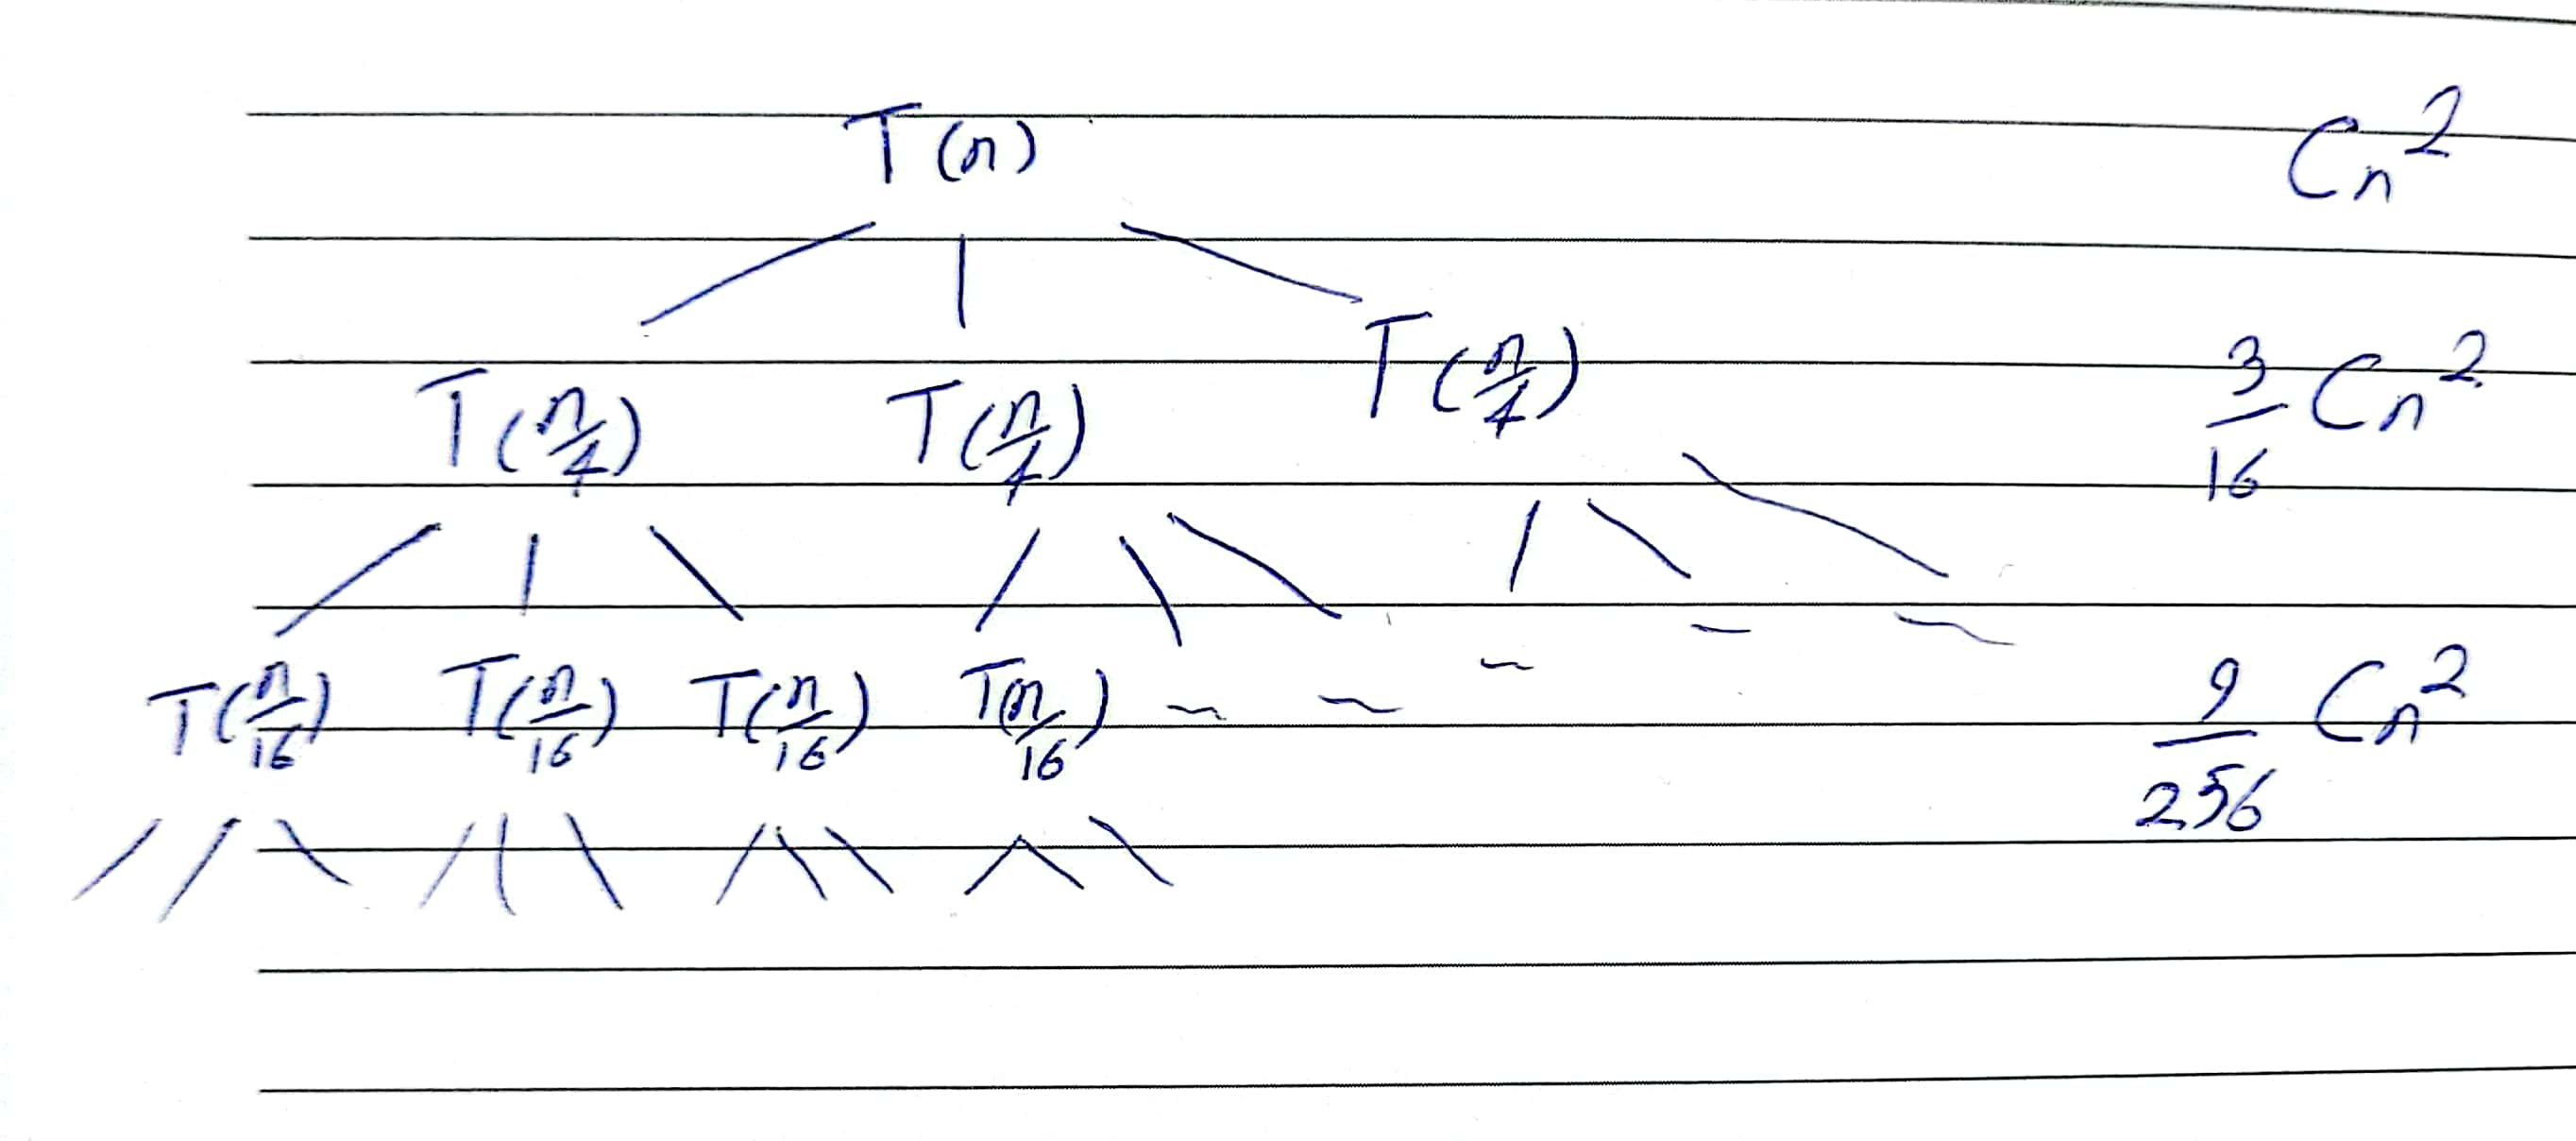 T(n) Cn²
T(n/4) T(n/4) T(n/4) 3/16 Cn²
T(n/16) T(n/16) T(n/16) T(n/16) ~ ~ ~ – ~ 9/256 Cn²